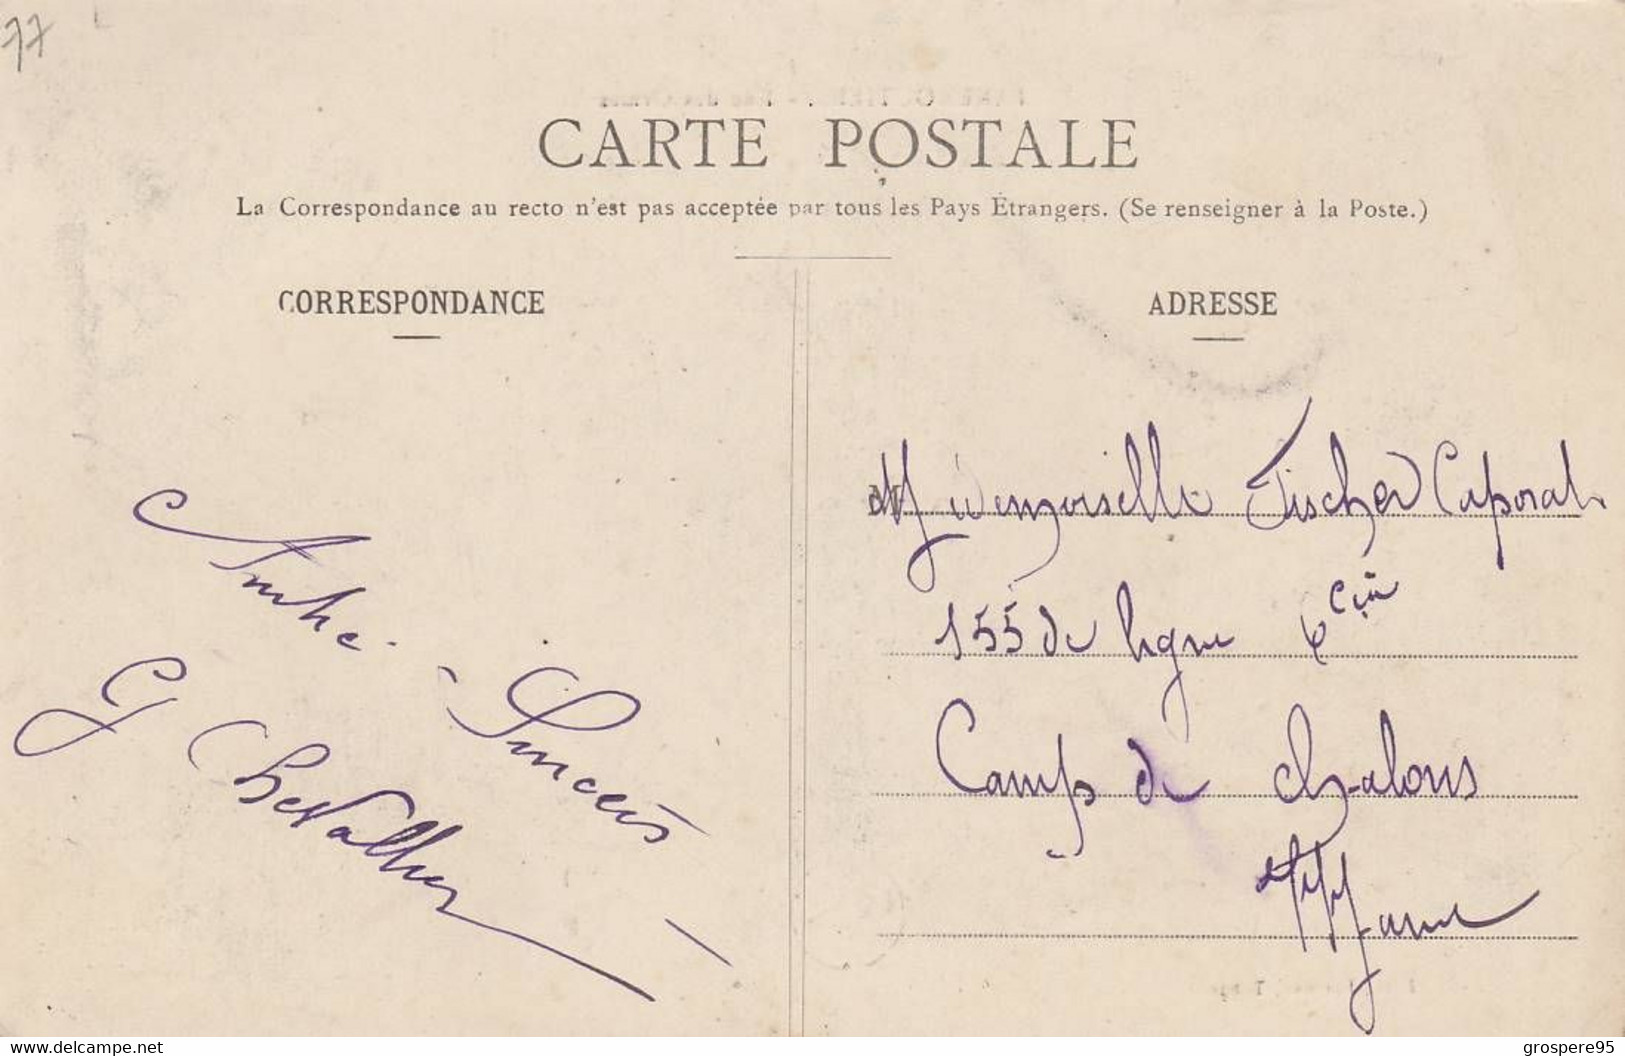 77
CARTE POSTALE
La Correspondance au recto n'est pas acceptée par tous les Pays Étrangers. (Se renseigner à la Poste.)
CORRESPONDANCE
ADRESSE
Sincères
G Chevallier
Mademoiselle Fischer Caporal
155 de ligne 6 Cie
Camp de Chalons
Marne
www.delcampe.net
grospere95